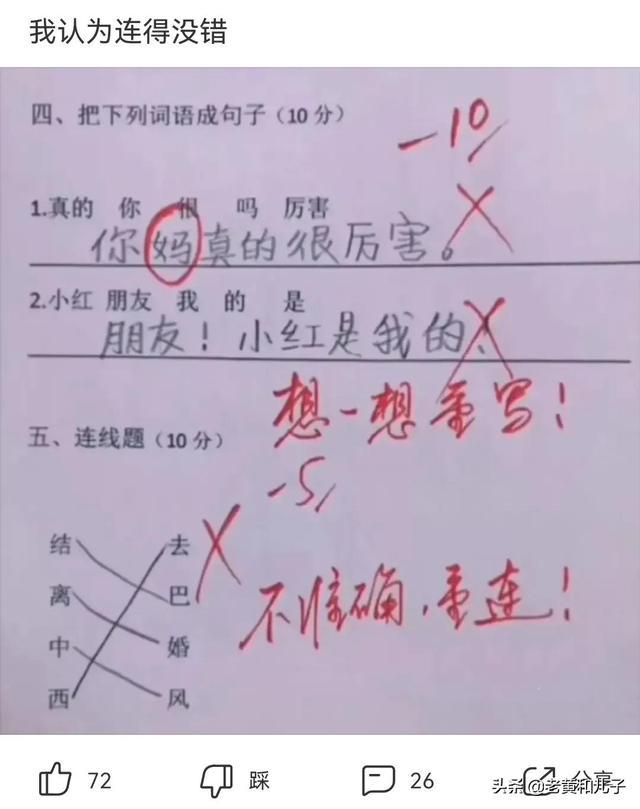 我认为连得没错
四、把下列词语成句子（10分）
-10
1.真的 你 很 吗 厉害
你妈真的很厉害。
2.小红 朋友 我 的 是
朋友！小红是我的、
想一想重写！
五、连线题（10分）
-5
结 去
离 巴
不准确，重连！
中 婚
西 风
72 踩 26 分享
头条@老黄和儿子